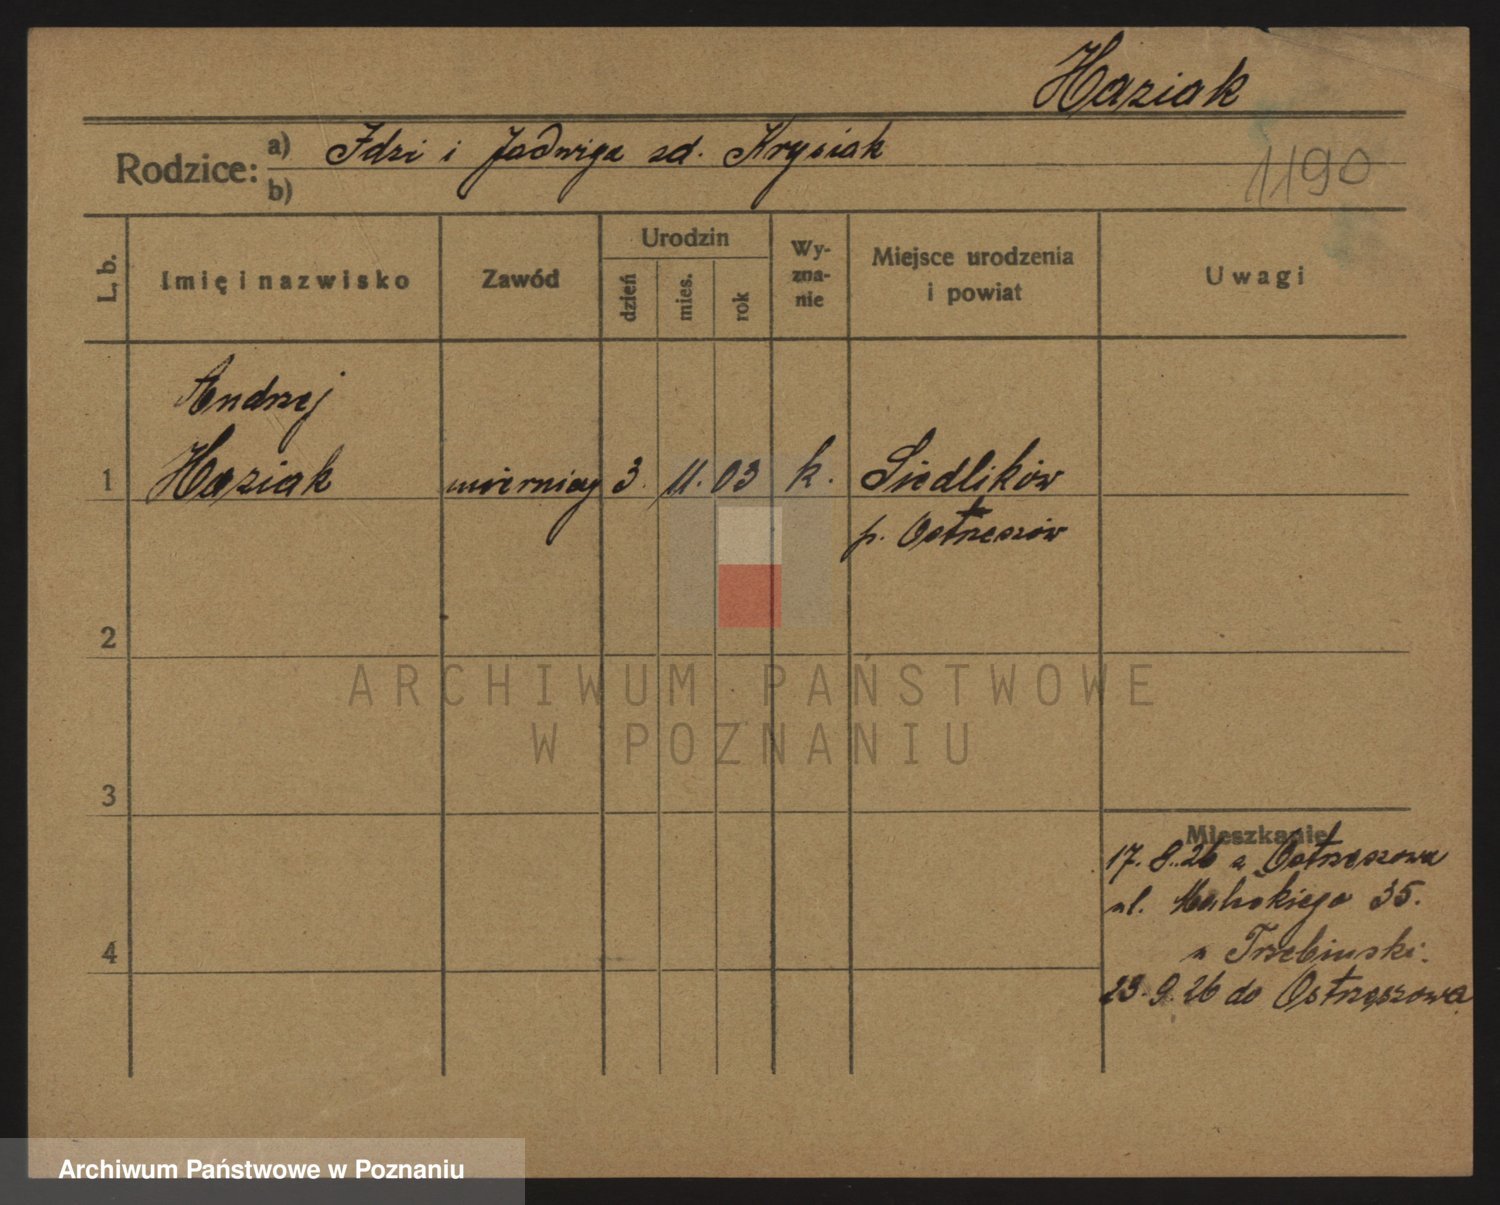 Haziak
Rodzice: a) Idzi i Jadwiga zd. Krysiak
b)
1190
L. b.
Imię i nazwisko
Zawód
Urodzin
dzień
mies.
rok
Wy-
zna-
nie
Miejsce urodzenia
i powiat
Uwagi
Andrzej
1 Haziak mierniczy 3. 11. 03 k. Siedlików
p. Ostrzeszów
2
ARCHIWUM PAŃSTWOWE
W POZNANIU
3
Mieszkanie
17. 8. 26 z Ostrzeszowa
ul. 35.
4
u Trzebiński.
23. 9. 26 do Ostrzeszowa
Archiwum Państwowe w Poznaniu